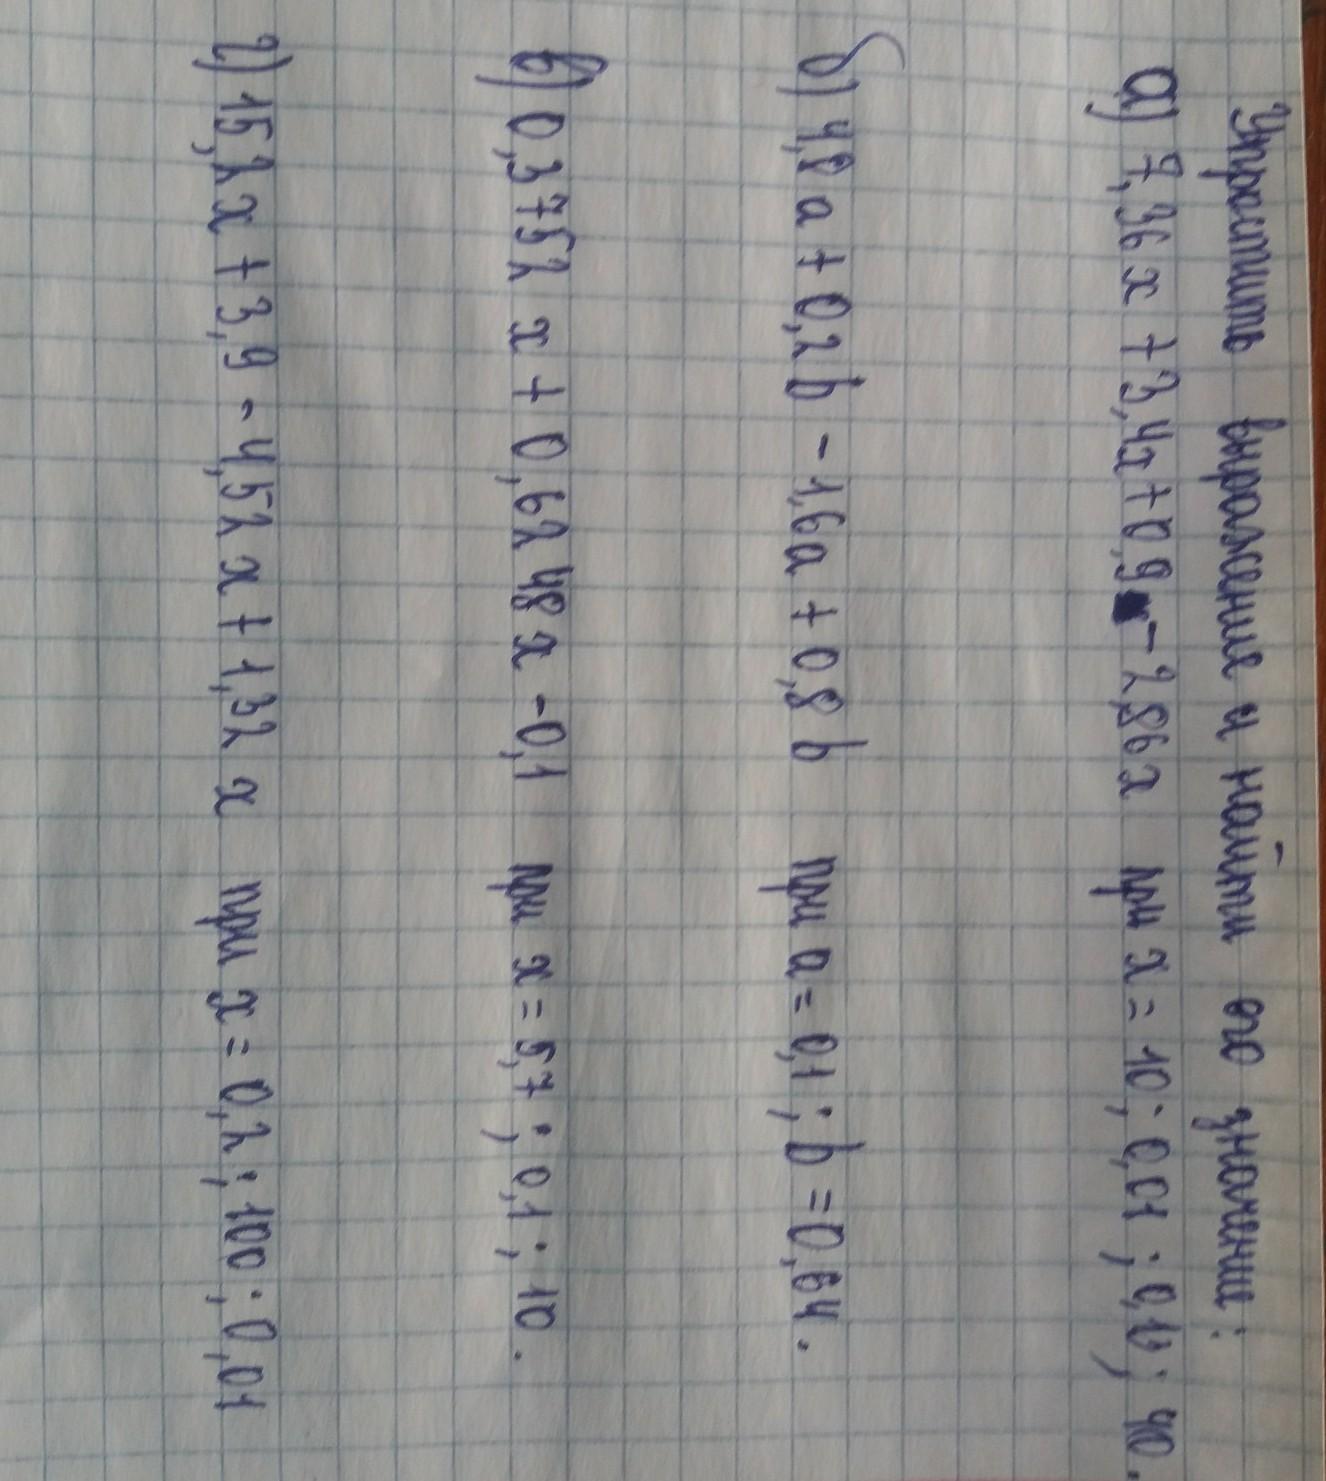 Упростить выражение и найти его значение:
а) 7,36x + 3,4x + 0,9 - 2,86x при x = 10; 0,01; 0,1; 40.
б) 4,8a + 0,2b - 1,6a + 0,8b при a = 0,1; b = 0,64.
в) 0,3752x + 0,6248x - 0,1 при x = 5,7; 0,1; 10.
г) 15,2x + 3,9 - 4,52x + 1,32x при x = 0,2; 100; 0,01